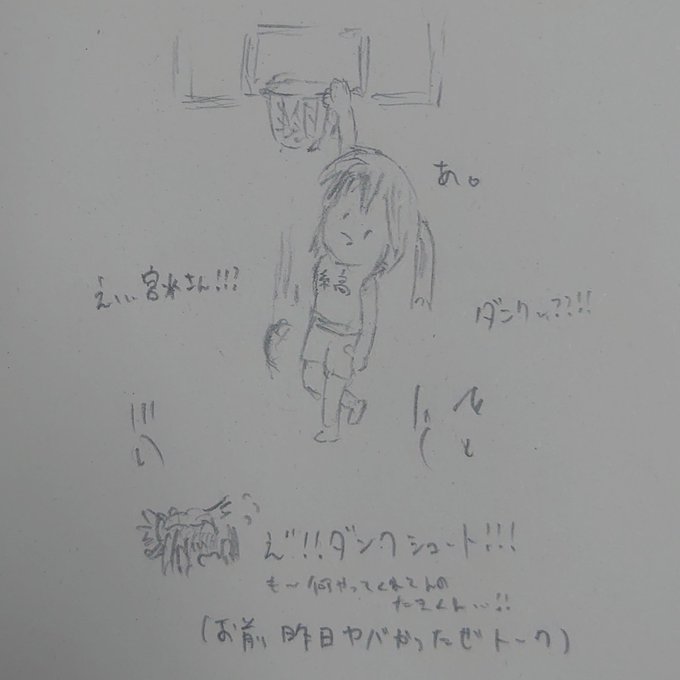 あ。
えぃぃ宮水さん!!!
ダンクぃ??!!
縞
え゛!!ダンクシュート!!!
も〜何やってくれてんの
たきくん…!!
(お前、昨日ヤバかったぜトーク)